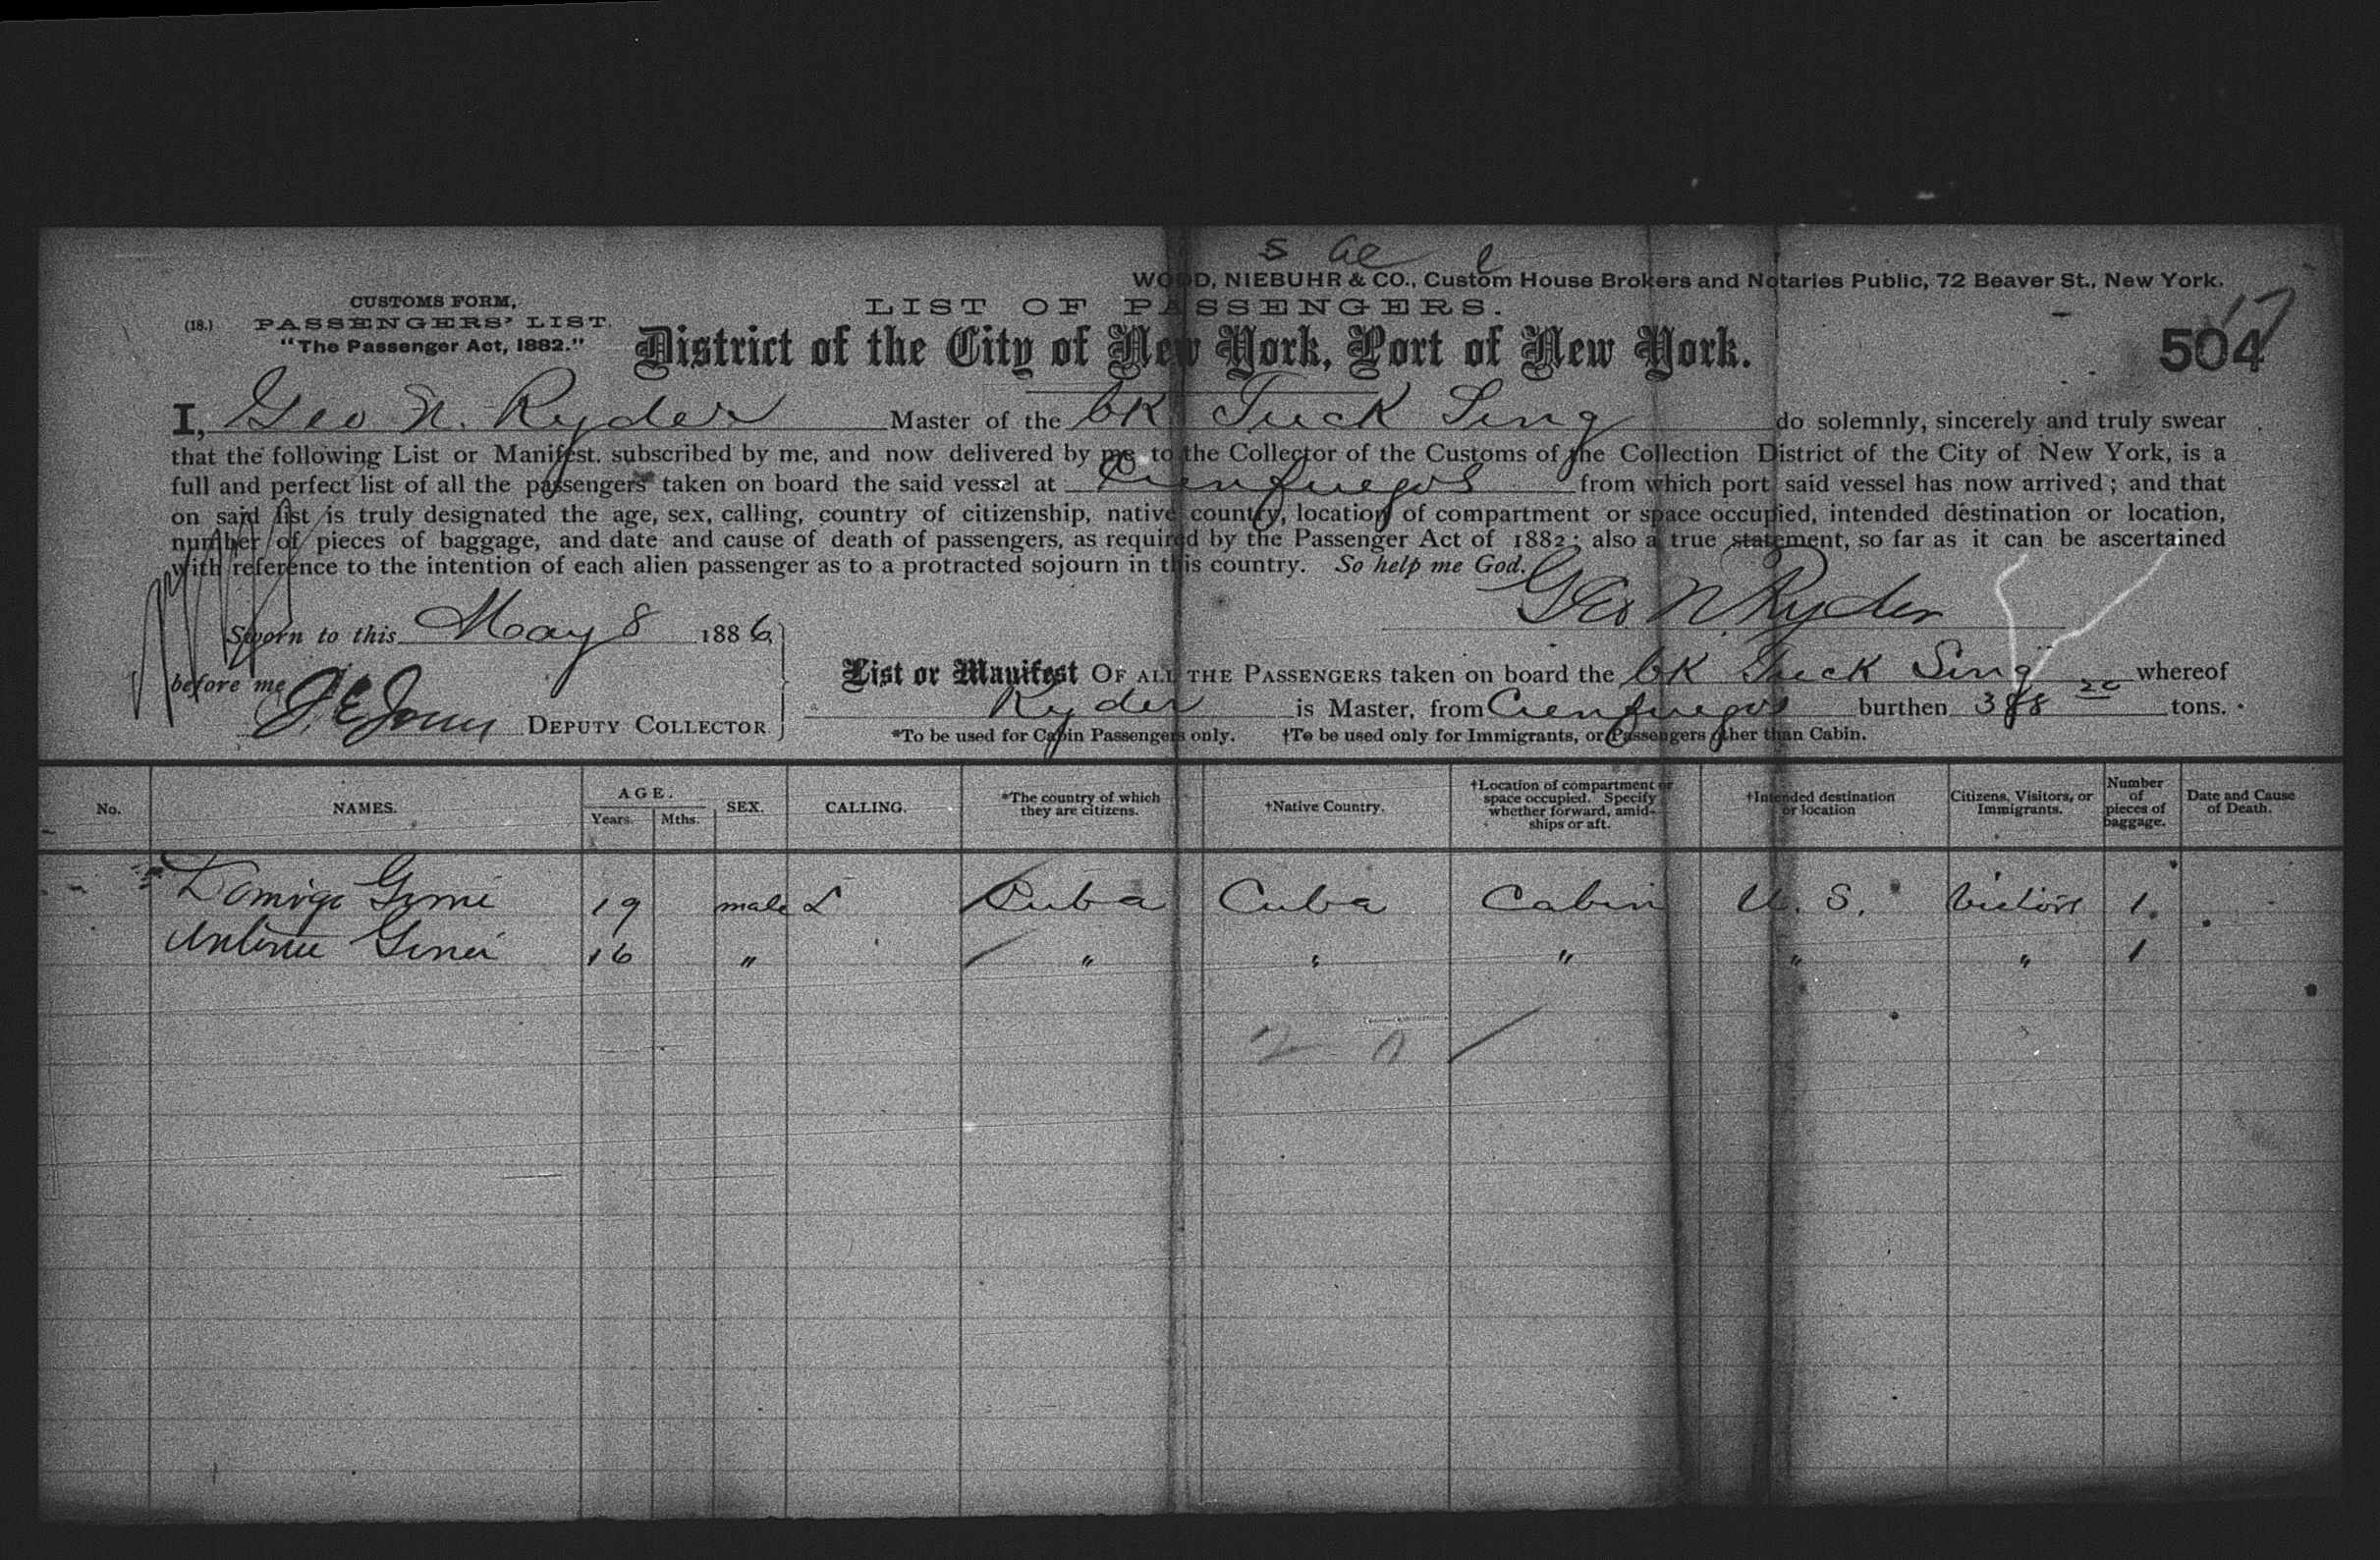 WOOD, NIEBUHR & CO., Custom House Brokers and Notaries Public, 72 Beaver St., New York.
CUSTOMS FORM,
(18.) PASSENGERS' LIST.
"The Passenger Act, 1882."
LIST OF PASSENGERS.
District of the City of New York, Port of New York.
17
504
I, Geo N. Ryder Master of the bk Tuck Sing do solemnly, sincerely and truly swear
that the following List or Manifest, subscribed by me, and now delivered by me to the Collector of the Customs of the Collection District of the City of New York, is a
full and perfect list of all the passengers taken on board the said vessel at Cienfuegos from which port said vessel has now arrived; and that
on said list is truly designated the age, sex, calling, country of citizenship, native country, location of compartment or space occupied, intended destination or location,
number of pieces of baggage, and date and cause of death of passengers, as required by the Passenger Act of 1882; also a true statement, so far as it can be ascertained
with reference to the intention of each alien passenger as to a protracted sojourn in this country. So help me God.
Geo. N. Ryder
Sworn to this May 8 1886
before me
J. E. Jones DEPUTY COLLECTOR
List or Manifest OF ALL THE PASSENGERS taken on board the bk Tuck Sing whereof
Ryder is Master, from Cienfuegos burthen 388 20 tons.
*To be used for Cabin Passengers only. †To be used only for Immigrants, or Passengers other than Cabin.
No. NAMES. AGE. Years. Mths. SEX. CALLING. *The country of which they are citizens. †Native Country. †Location of compartment or space occupied. Specify whether forward, amidships or aft. †Intended destination or location Citizens, Visitors, or Immigrants. Number of pieces of baggage. Date and Cause of Death.
19 male Cuba Cuba Cabin U. S. 1
16 " " " " " " 1